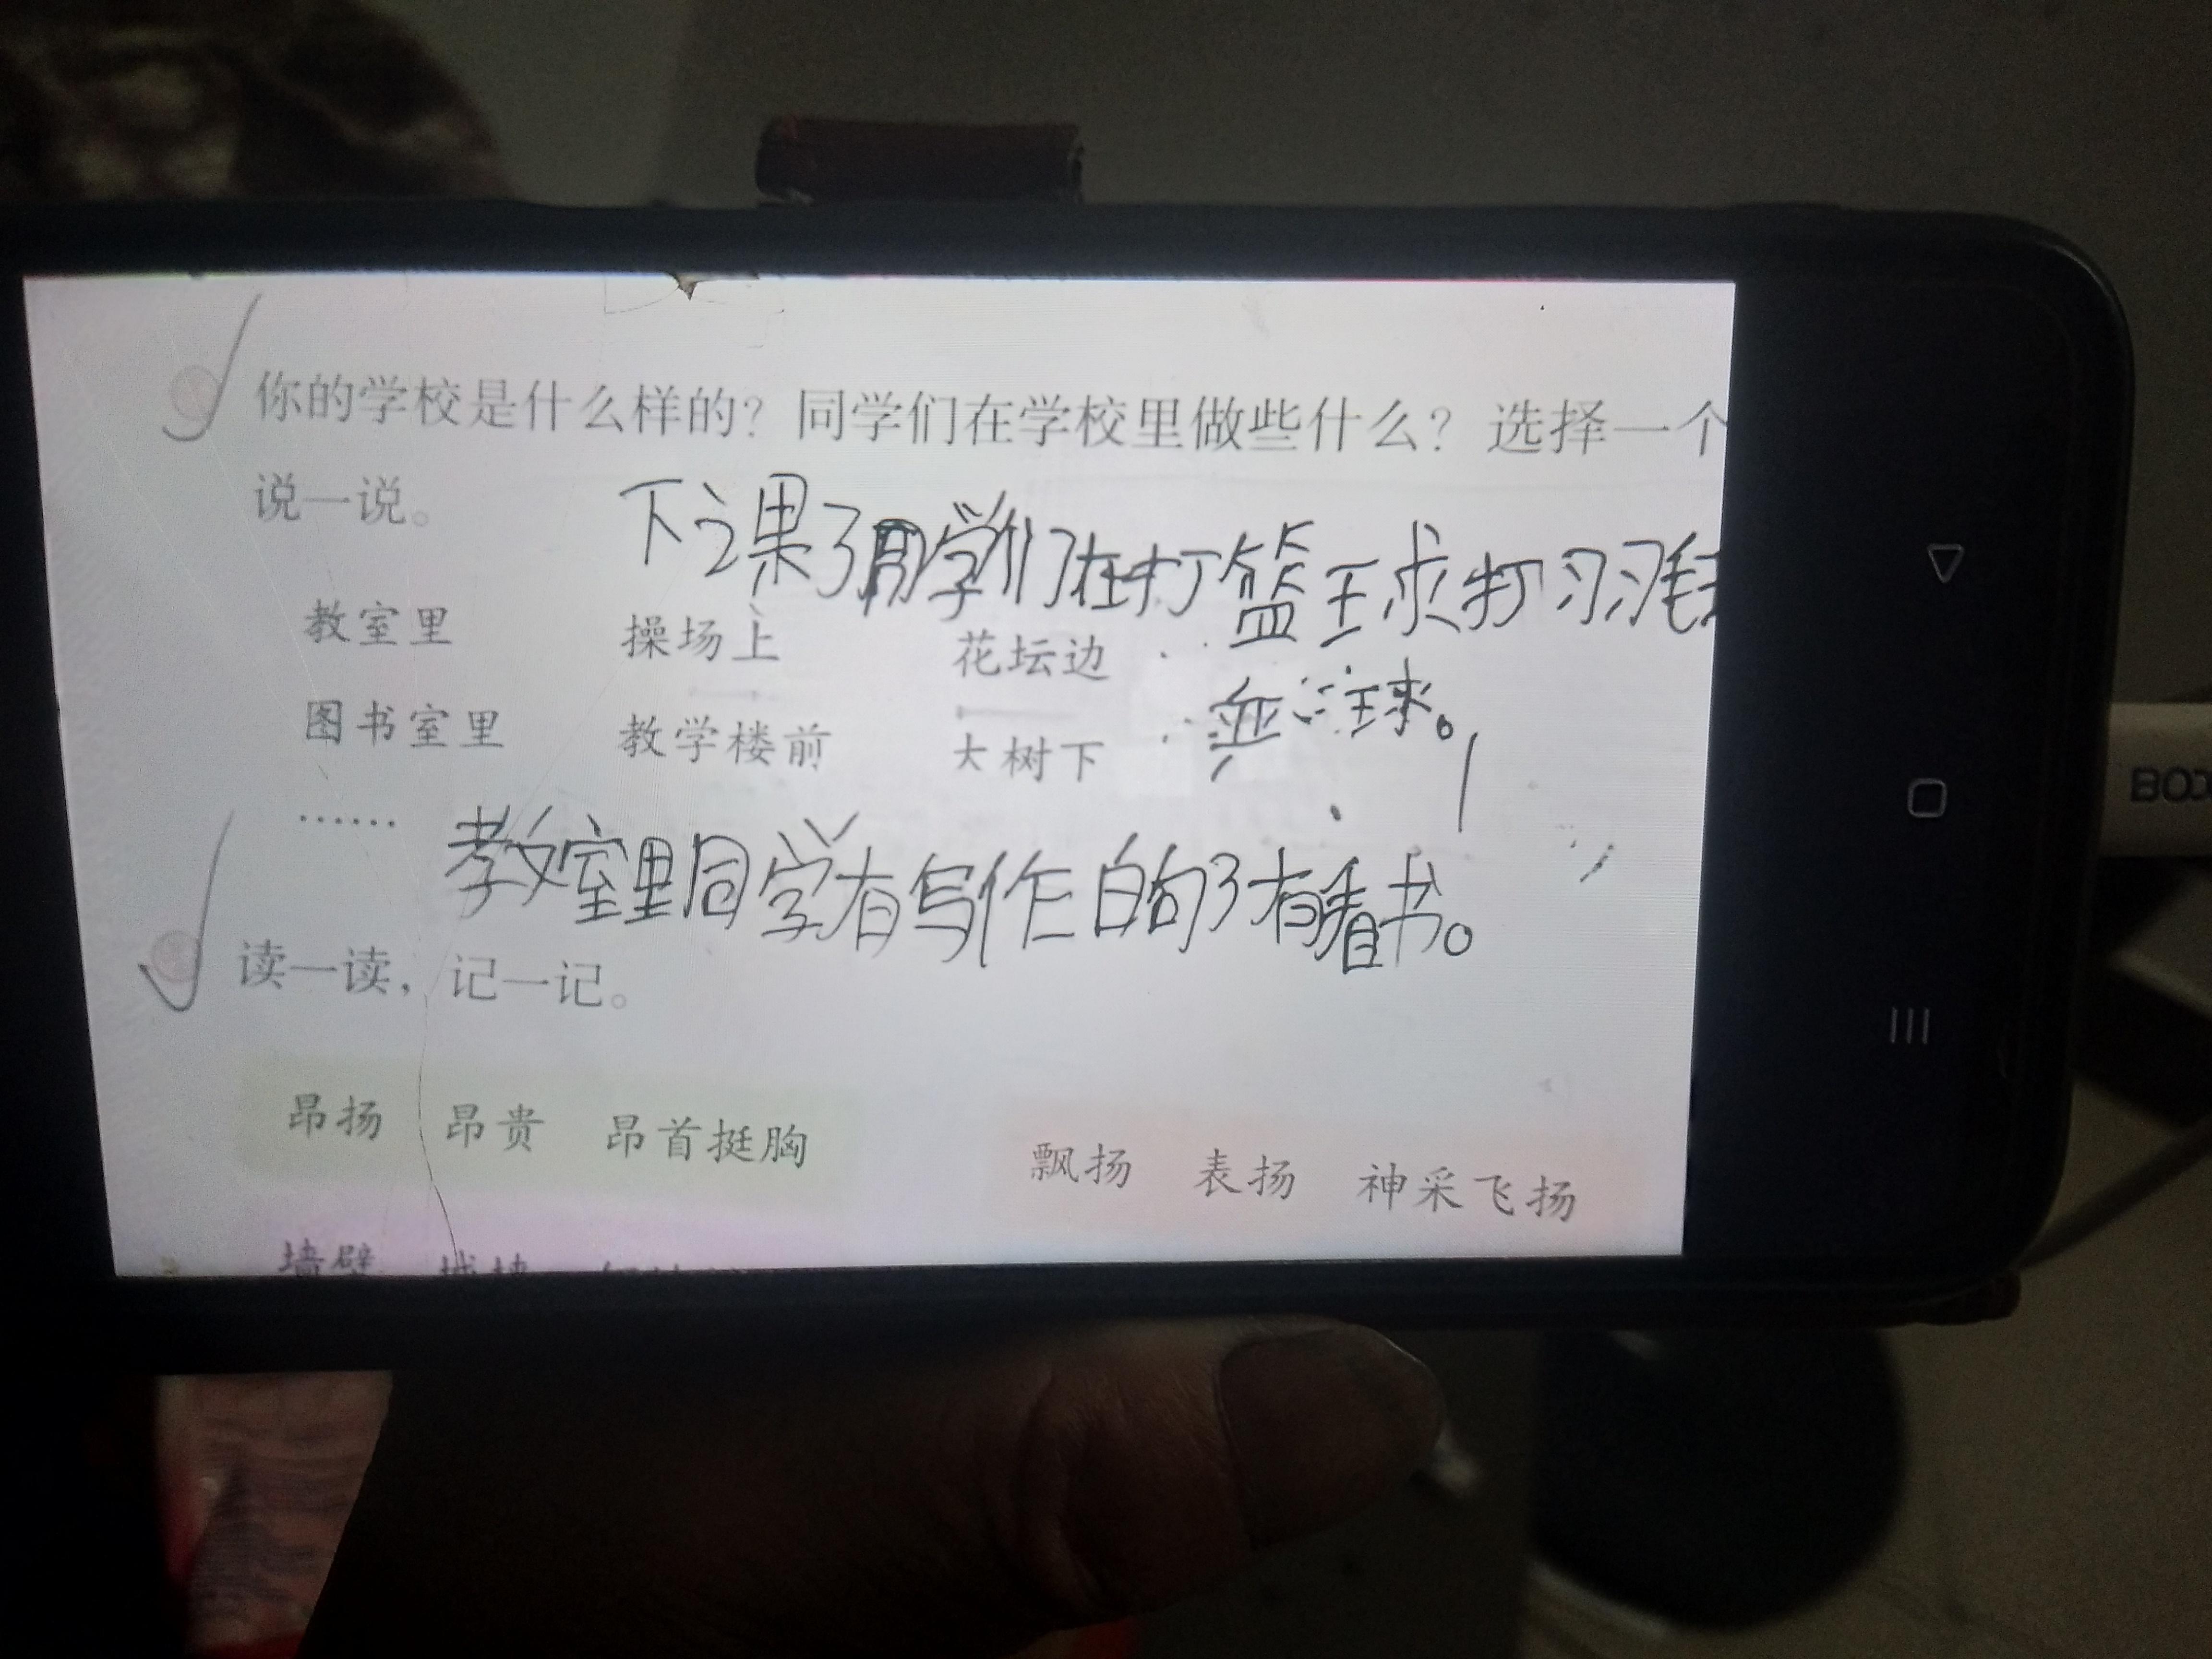 你的学校是什么样的？同学们在学校里做些什么？选择一个
说一说。
下课了同学们在打篮球打羽毛
教室里 操场上 花坛边
球。
图书室里 教学楼前 大树下
……
教室里同学有写作 白的了有看书。
读一读，记一记。
昂扬 昂贵 昂首挺胸
飘扬 表扬 神采飞扬
墙壁